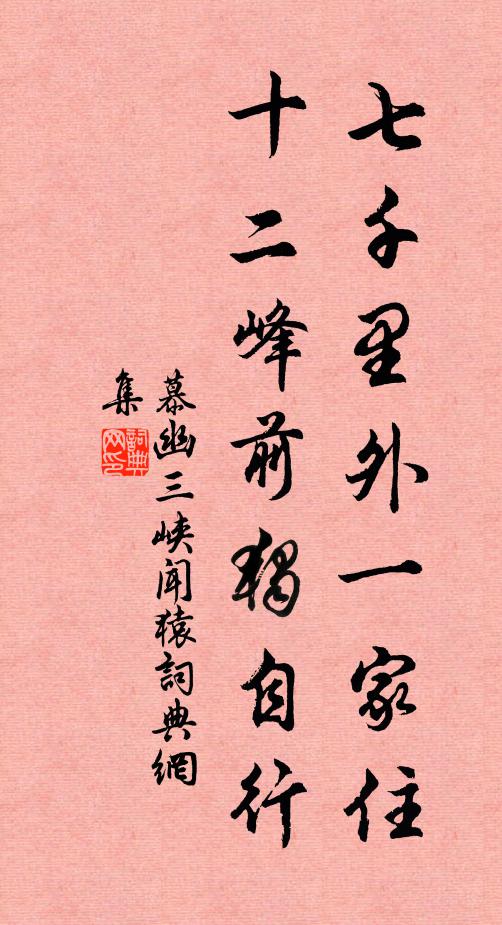 七千里外一家住
十二峰前獨自行
慕幽三峽聞猿詞典網
集
詞典網印